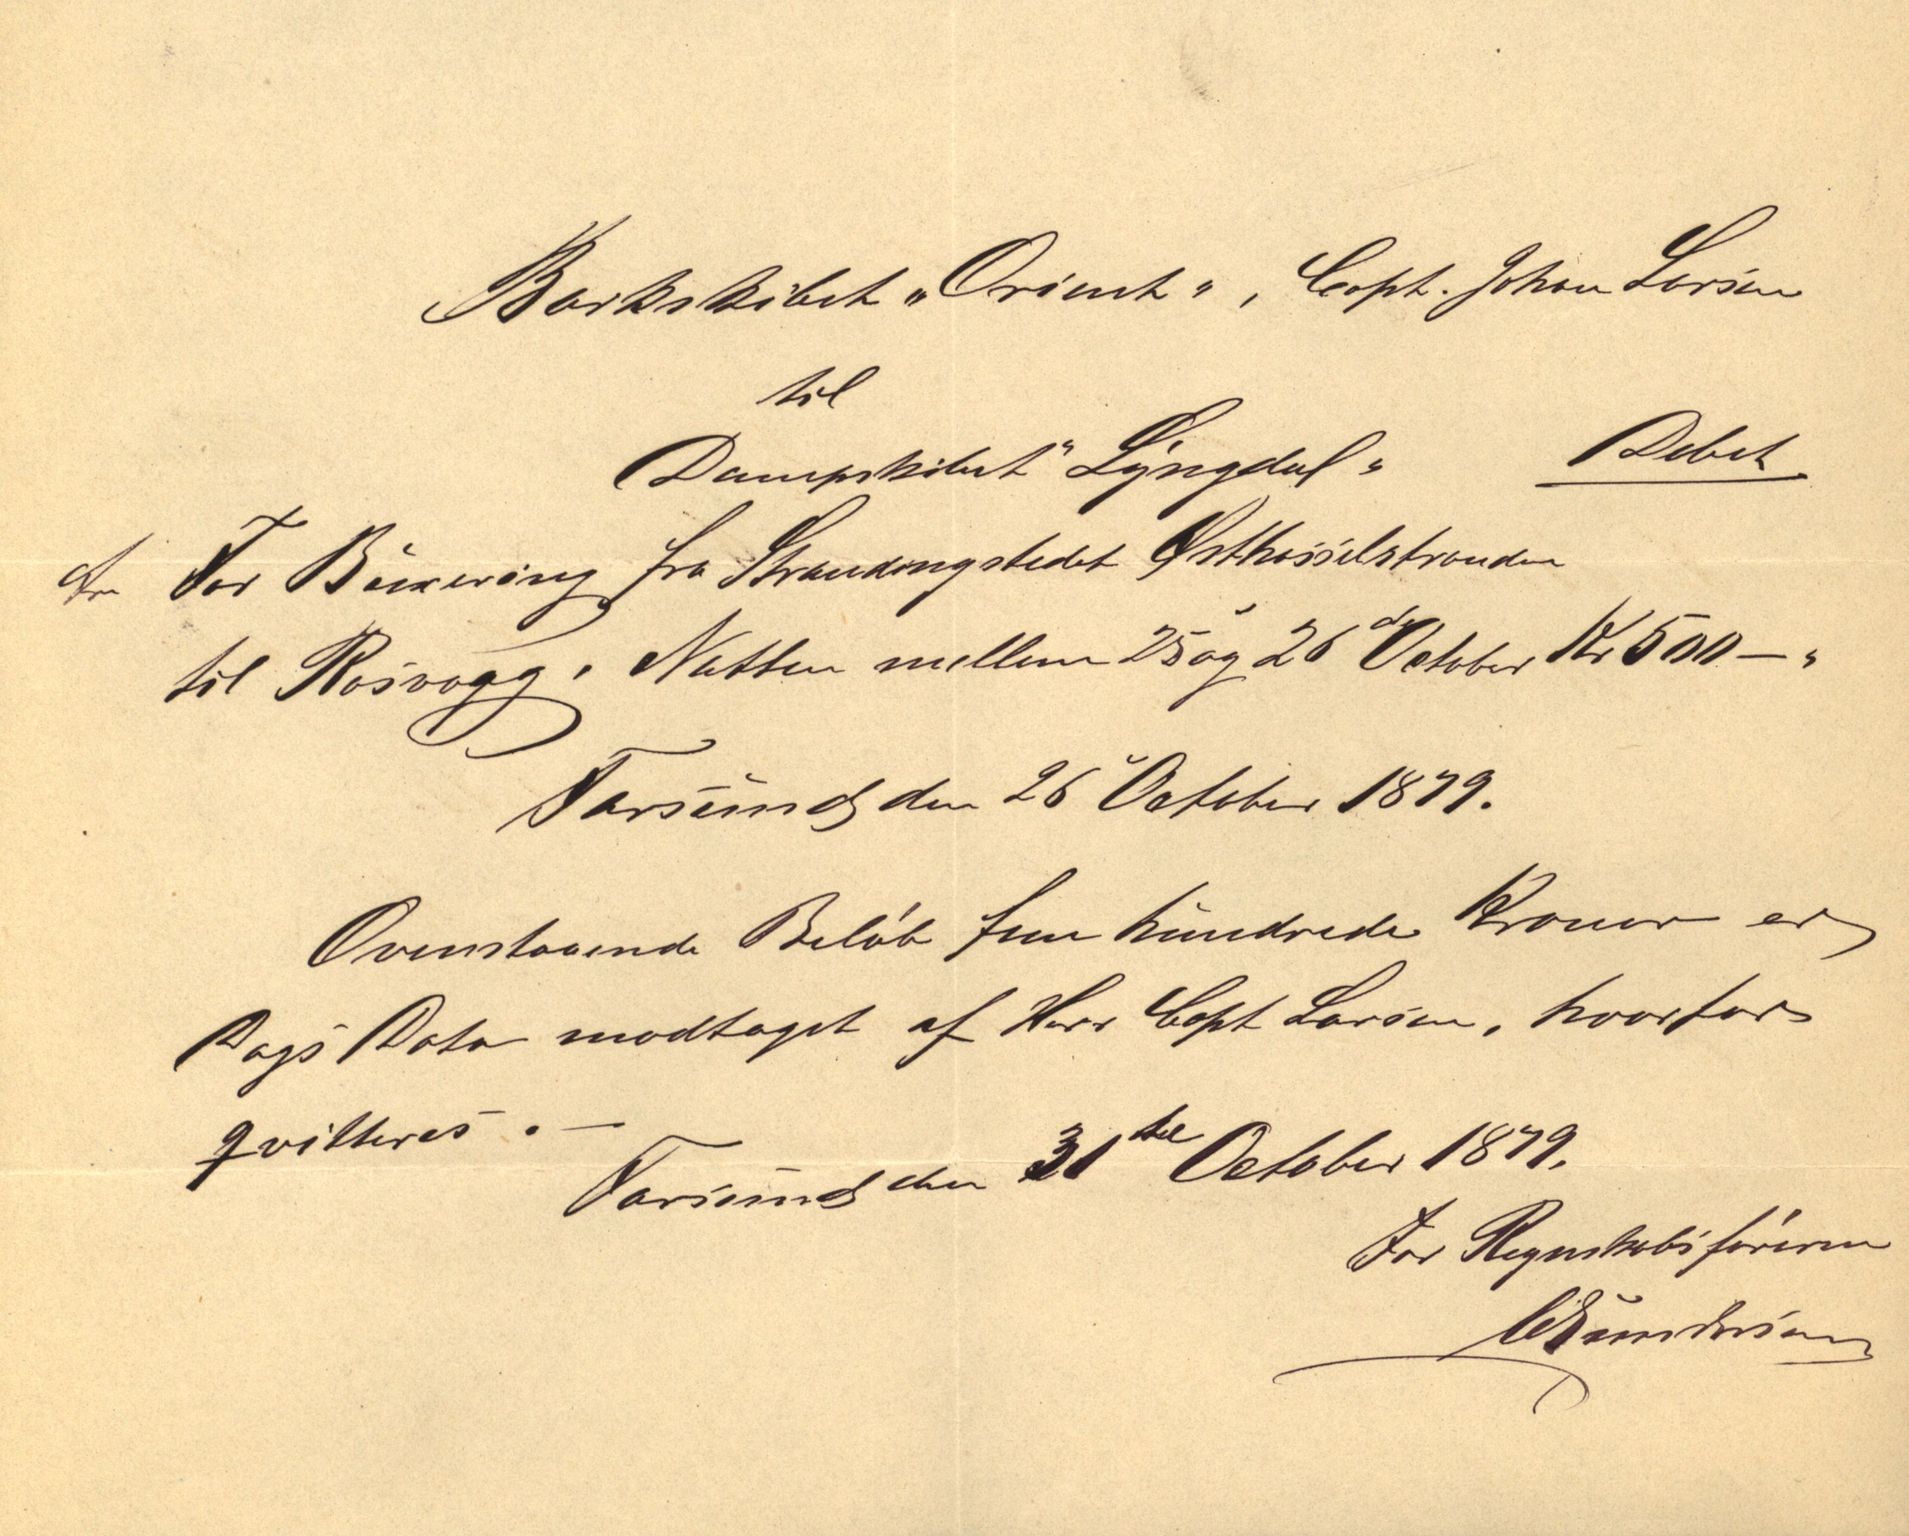 Barkskibet „Orient", Capt. Johan Larsen
til
Dampskibet "Lyngdal" Debet
For Buxering fra Strandingstedet Østhasselstranden
til Rosvogg, Natten mellem 25 og 26de October Kr 500 — "
Farsund den 26 October 1879.
Ovenstaaende Beløb fem hundrede Kroner er
Dags Dato modtaget af Herr Capt Larsen, hvorfor
qvitteres. —
Farsund den 31te October 1879.
For Regnskabsføreren